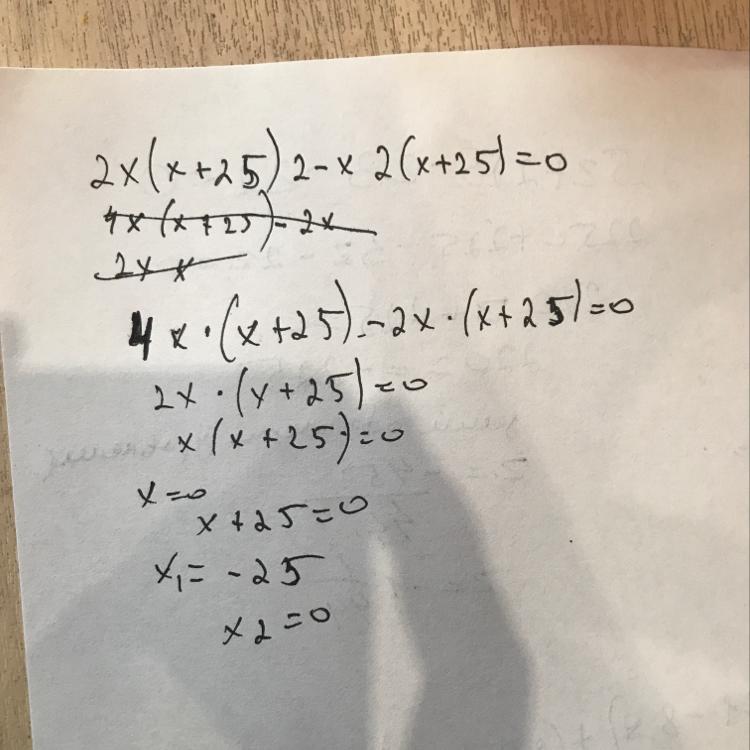 2x(x+25)2-x 2(x+25)=0
4x(x+25)-2x
2x x
4x·(x+25)-2x·(x+25)=0
2x·(x+25)=0
x(x+25)=0
x=0
x+25=0
x₁=-25
x2=0